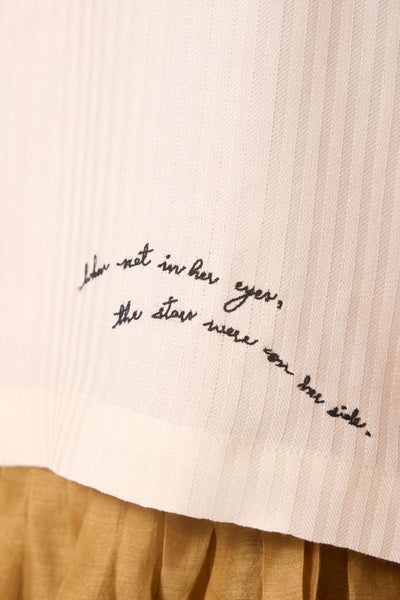 when not in her eyes,
the stars were on her side.